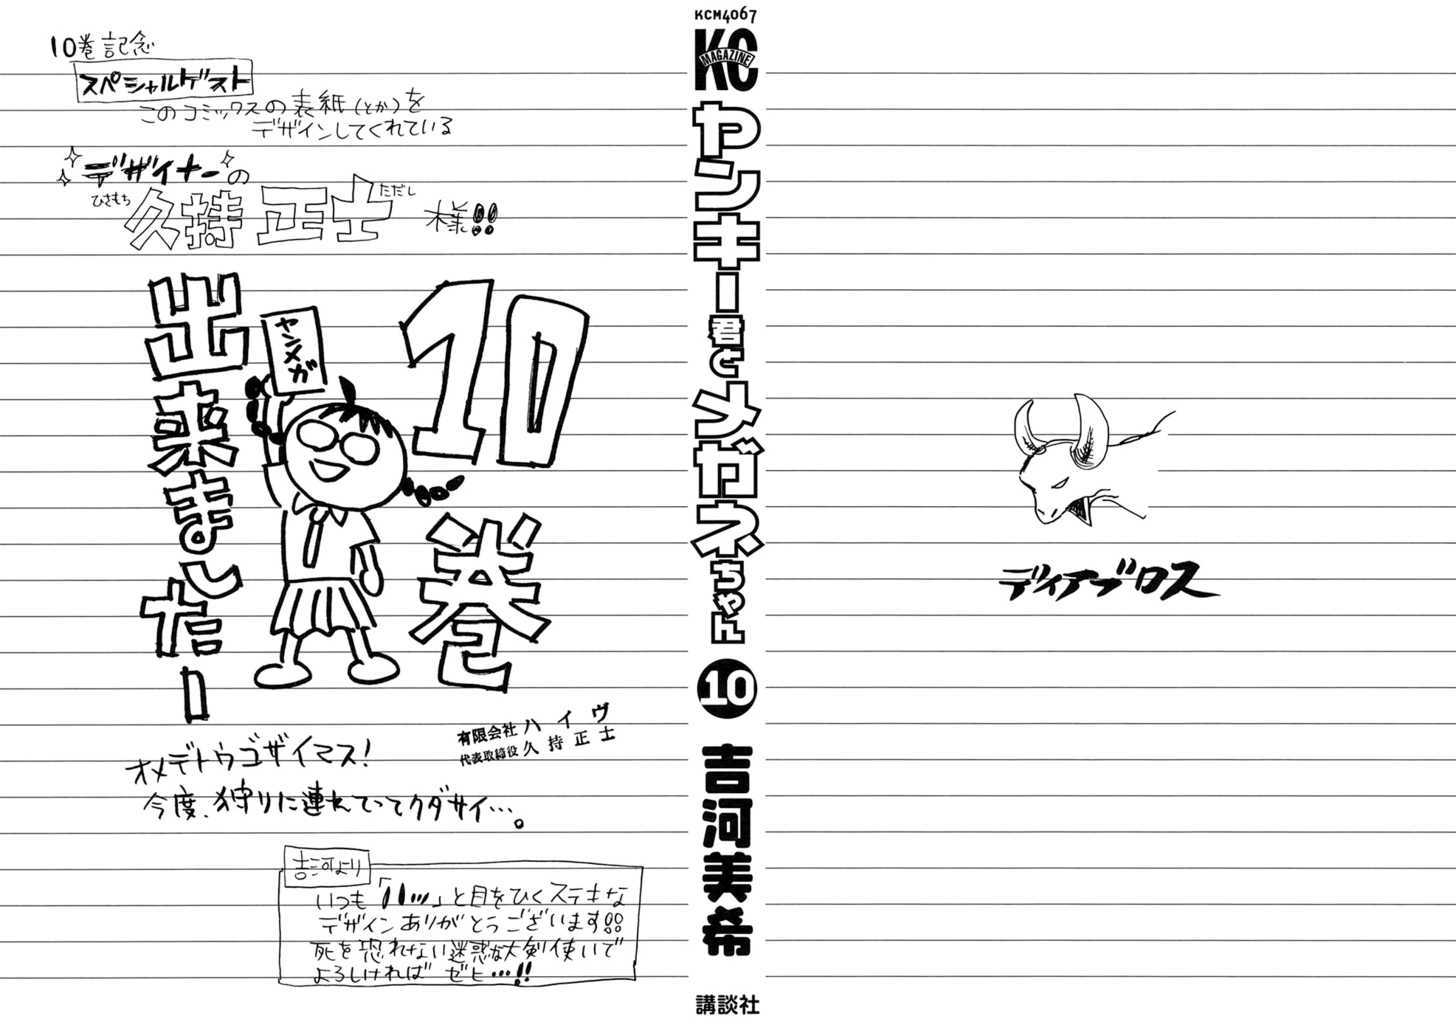 10巻記念
スペシャルゲスト
このコミックスの表紙(とか)を
デザインしてくれている
デザイナーの
久持 正士 様!!
ひさもち ただし
10巻
出来ましたー
ヤンメガ
オメデトウゴザイマス!
今度、狩りに連れてってクダサイ…。
有限会社 ハイヴ
代表取締役 久持正士
吉河より
いつも「ハッ」と目をひくステキな
デザインありがとうございます!!
死を恐れない迷惑な大剣使いで
よろしければ ゼヒ…!!
KCM4067
KC
MAGAZINE
ヤンキー君とメガネちゃん
10
吉河美希
講談社
ディアブロス